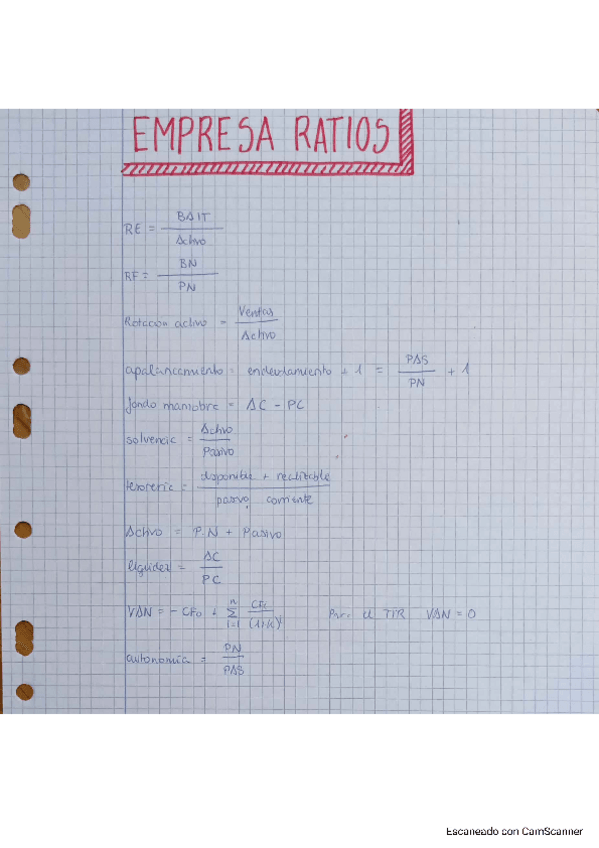 EMPRESA RATIOS
RE = BAIT / Activo
RF = BN / PN
Rotacion activo = Ventas / Activo
apalancamiento = endeudamiento + 1 = PAS / PN + 1
fondo maniobre = AC - PC
solvencia = Activo / Pasivo
tesoreria = disponible + realizable / pasivo corriente
Activo = P.N + Pasivo
liquidez = AC / PC
VAN = - CF₀ + Σ n i=1 CFi / (1+k)^i Para el TIR VAN = 0
autonomia = PN / PAS
Escaneado con CamScanner